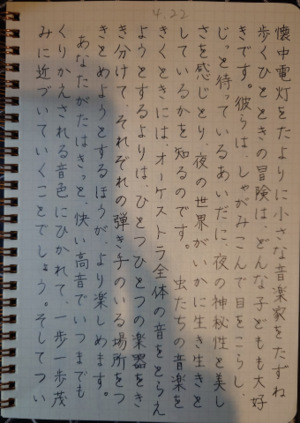 4.22
懐中電灯をたよりに小さな音楽家をたずね
歩くひとときの冒険は、どんな子どもも大好
きです。彼らは、しゃがみこんで目をこらし、
じっと待っているあいだに、夜の神秘性と美し
さを感じとり、夜の世界がいかに生き生きと
しているかを知るのです。 虫たちの音楽を
きくときには、オーケストラ全体の音をとらえ
ようとするよりは、ひとつひとつの楽器をき
き分けて、それぞれの弾き手のいる場所をつ
きとめようとするほうが、より楽しめます。
あなたがたはきっと、快い高音でいつまでも
くりかえされる音色にひかれて、一歩一歩茂
みに近づいていくことでしょう。そしてつい